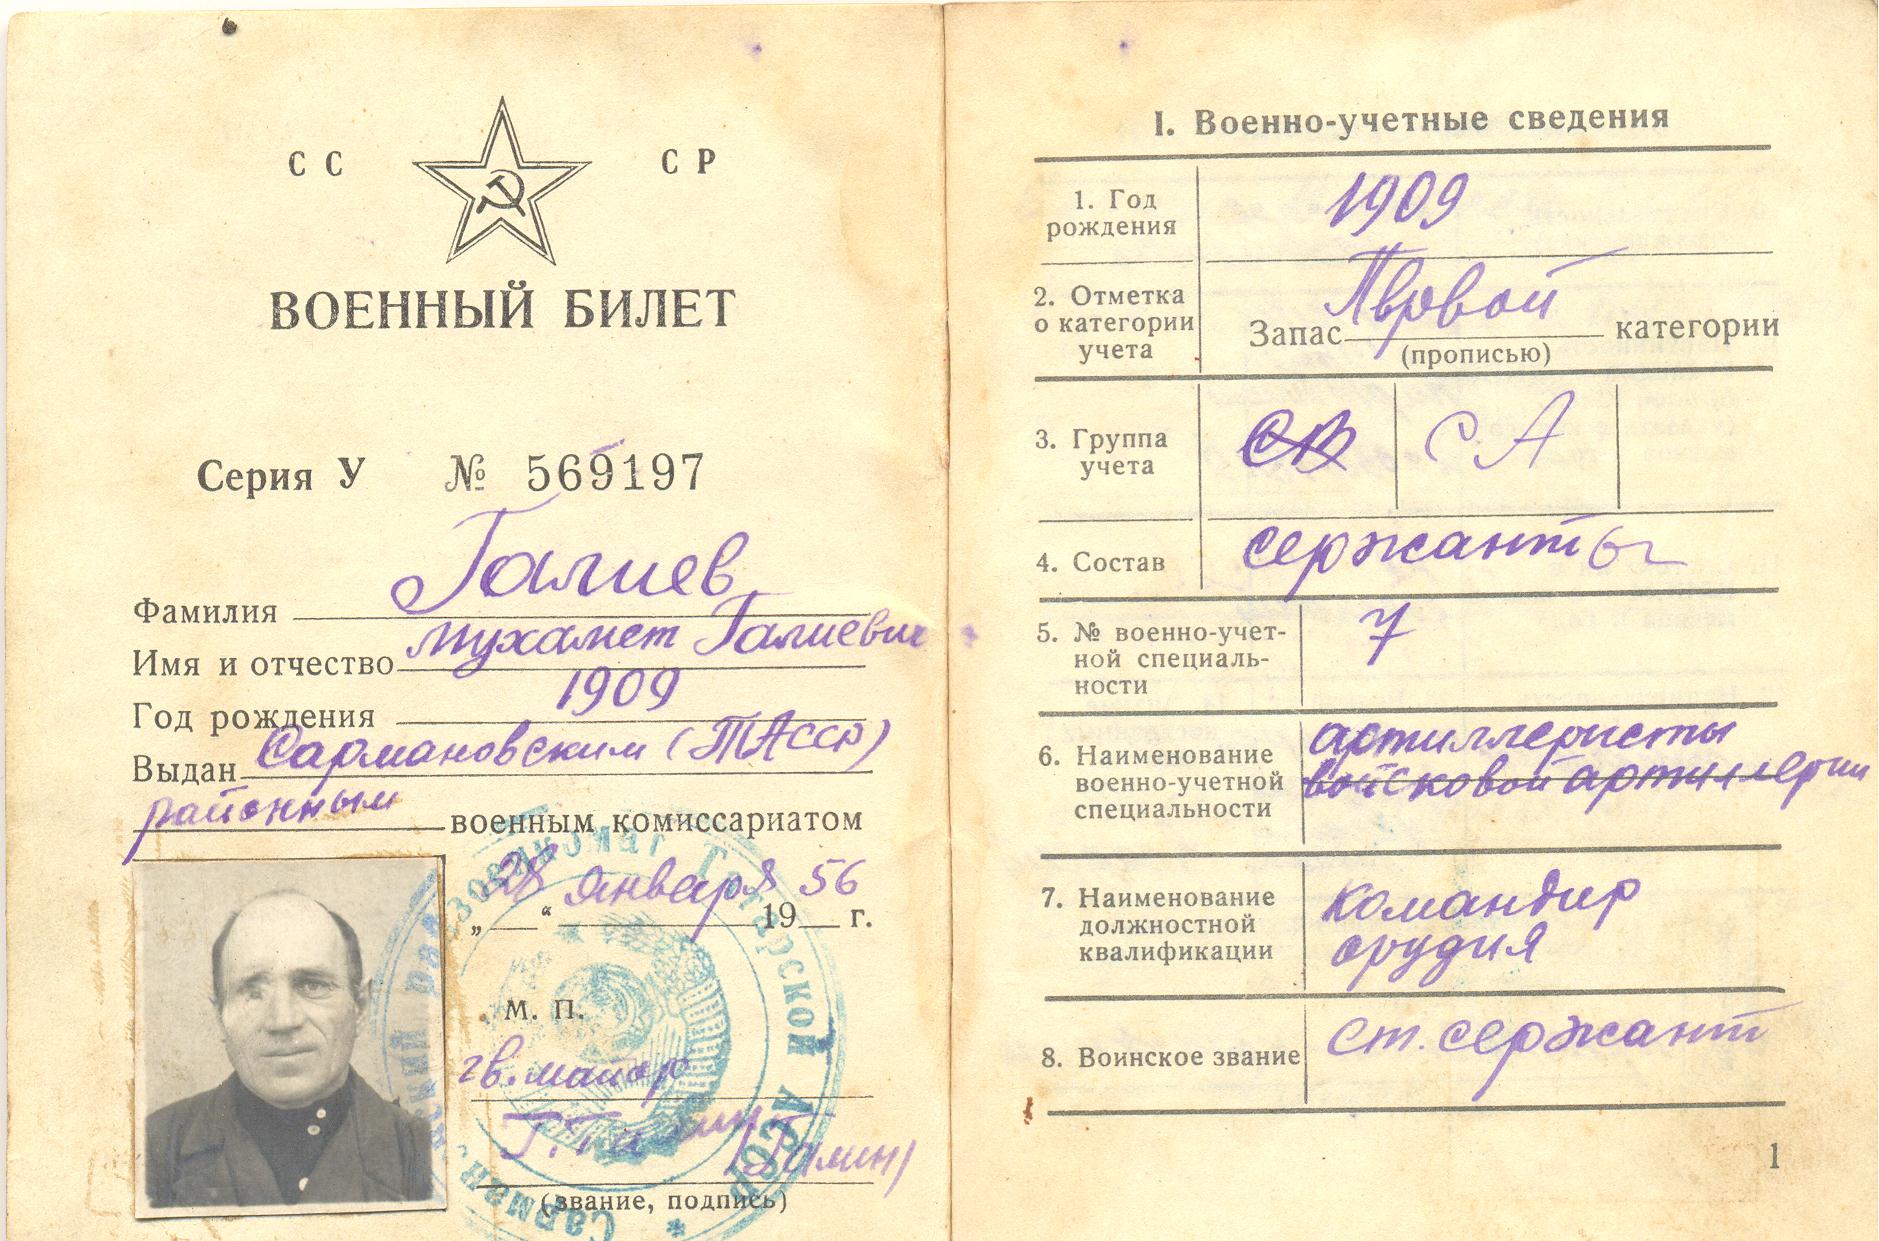 СС СР
ВОЕННЫЙ БИЛЕТ
Серия У № 569197
Фамилия Галиев
Имя и отчество Мухамет Галиевич
Год рождения 1909
Выдан Сармановским (ТАССР)
районным военным комиссариатом
„28“ января 1956 г.
М. П.
гв. майор
Г. Галин (Галин)
(звание, подпись)
райвоенкомат Татарской АССР
I. Военно-учетные сведения
1. Год
рождения
1909
2. Отметка
о категории
учета
Запас Первой категории
(прописью)
3. Группа
учета
СВ СА
4. Состав
сержанты
5. № военно-учет-
ной специаль-
ности
7
6. Наименование
военно-учетной
специальности
артиллеристы
войсковой артиллерии
7. Наименование
должностной
квалификации
командир
орудия
8. Воинское звание
ст. сержант
1